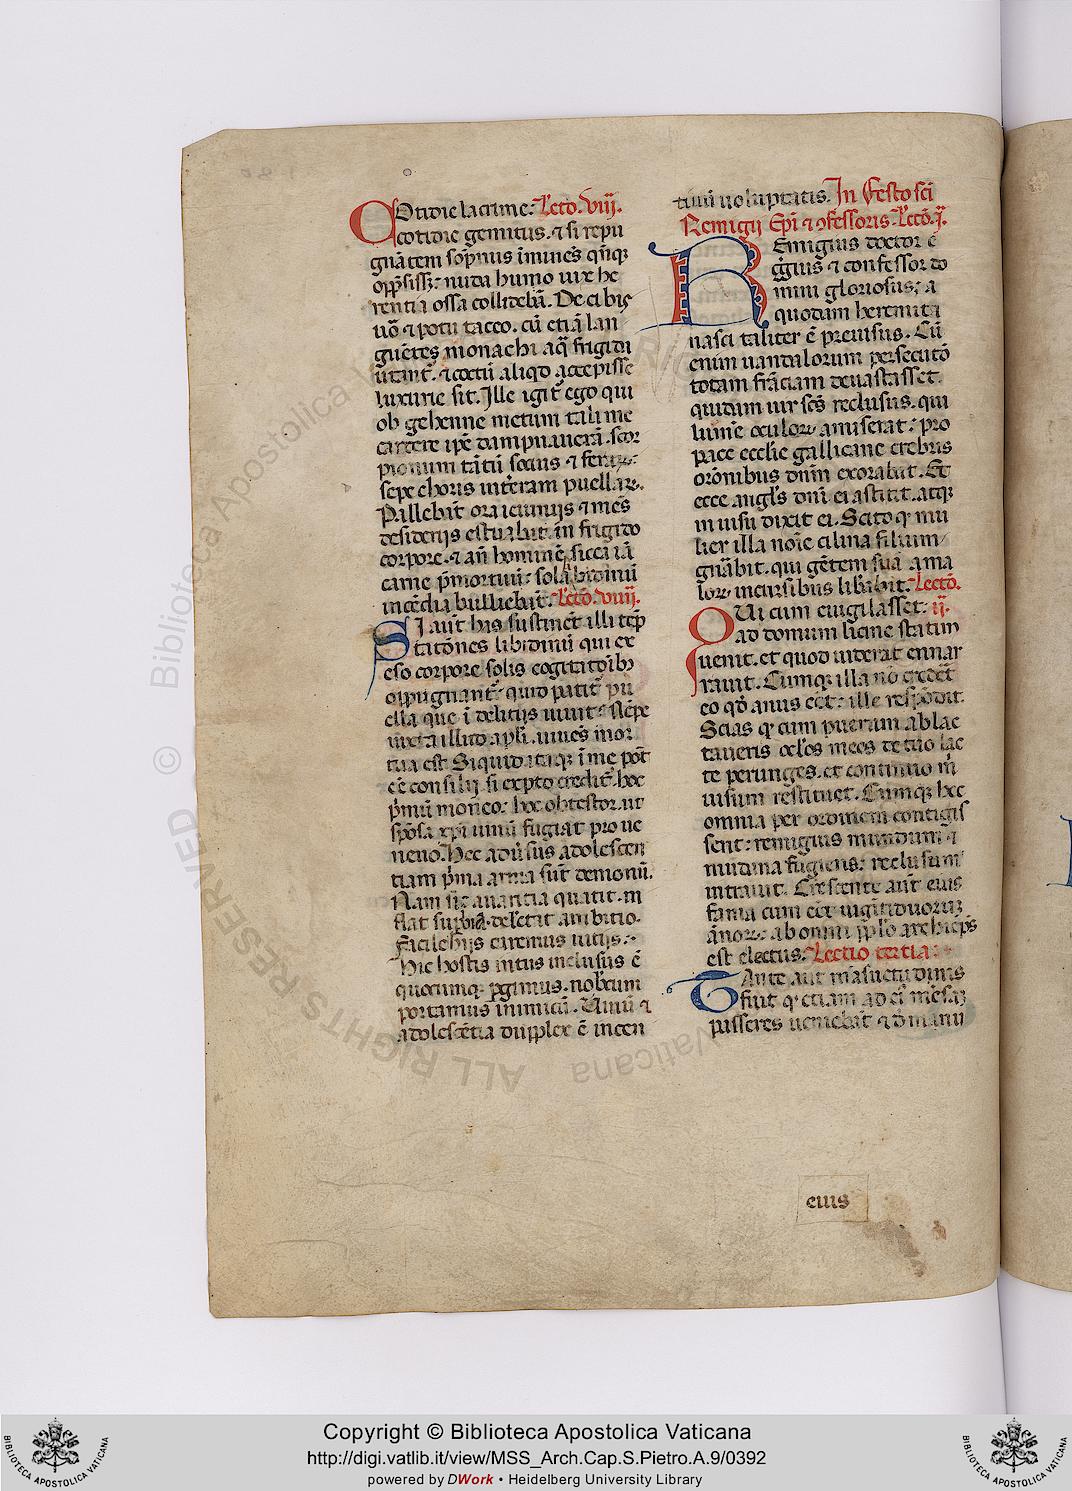 Otidie lacrime: Lecto. viii.
cotidie gemitus. ⁊ si repu
gnātem sopnus īmines qn̄qꝫ
opp̄sissꝫ: nuda humo vix he
rentia ossa collidebā. De cibis
uō ⁊ potu taceo. cū etiā lan
guētes monachi aqā frigidā
utant. ⁊ coctū aliqd accepisse
luxurie sit. Ille igit ego qui
ob gehenne metum tali me
carcere ipē dampnauerā. scor
pionum tātū socius ⁊ feraꝝ:
sepe choris interam puellaꝝ.
Pallebāt ora ieiuniis ⁊ mēs
desideriis estuabat. in frigido
corpore. ⁊ añ hominē sicca iā
carne p̄mortuū: sola libidinū
incēdia bulliebāt. Lecto. viiii.
SI aut̄ hoc sustinēt illi tēp
tatōnes libidinū qui ex
eso corpore solis cogitatōibꝫ
oppugnant: quid patit̄ pu
ella que ī delitiis uiuit: Nēpe
iuxta illud apli. uiuēs mor
tua est Siquid itaqꝫ ī me pōt
eē consilii si exp̄to credit̄. hoc
p̄mū moneo: hoc obtestor. ut
spōsa xp̄i uinū fugiat pro ue
neno. Hec aduersus adolescen
tiam p̄ma arma sūt demonū.
Nam sic auaritia quatit. in
flat suꝑbia. delectat ambitio.
Facile hiis caremus uitiis:
Hic hostis intus inclusus ē
quocumqꝫ pgimus. nobcum
portamus inimicū. Uinū ⁊
adolescētia dupplex ē incen
tiuū uoluptatis. In Festo sc̄i
Remigii Ep̄i ⁊ ꝯfessoris. Lecto. i.
REmigius doctor e
gius ⁊ confessor do
mini gloriosus: a
quodam heremita
nasci taliter ē preuisus. Cū
enim uandalorum ꝑsecutō
totam frāciam deuastasset.
quidam uir scs̄ reclusus. qui
lumē oculoꝝ amiserat: pro
pace ecclie gallicane crebris
orōnibus dnm̄ exorabat. Et
ecce angls dnī ei astitit. atqꝫ
in uisu dixit ei. Scito qꝫ mu
lier illa noīe cilina filium
gnābit. qui gētem suā a ma
loꝝ incursibus libābit. Lecto.
QUi cum euigilasset: ii.
ad domum cilinie statim
uenit. et quod uiderat ennar
rauit. Cumqꝫ illa nō crederet
eo qd̄ anus eēt: ille respōdit.
Scias qꝫ cum puerum ablac
taueris oclos meos de tuo lac
te perunges. et continuo m̄
uisum restituet. Cumqꝫ hec
omnia per ordinem contigis
sent: remigius mundum ⁊
mūdana fugiens: reclusum
intrauit. Crescente aut̄ eius
fama cum eēt uigintiduoruꝫ
annoꝝ: ab omni pplo archiep̄s
est electus. Lectio tertia:
TAnte aut̄ māsuetudinis
fuit qꝫ etiam ad eī mēsaꝫ
passeres ueniebāt ⁊ d̄ manu
eius
Copyright © Biblioteca Apostolica Vaticana
http://digi.vatlib.it/view/MSS_Arch.Cap.S.Pietro.A.9/0392
powered by DWork • Heidelberg University Library